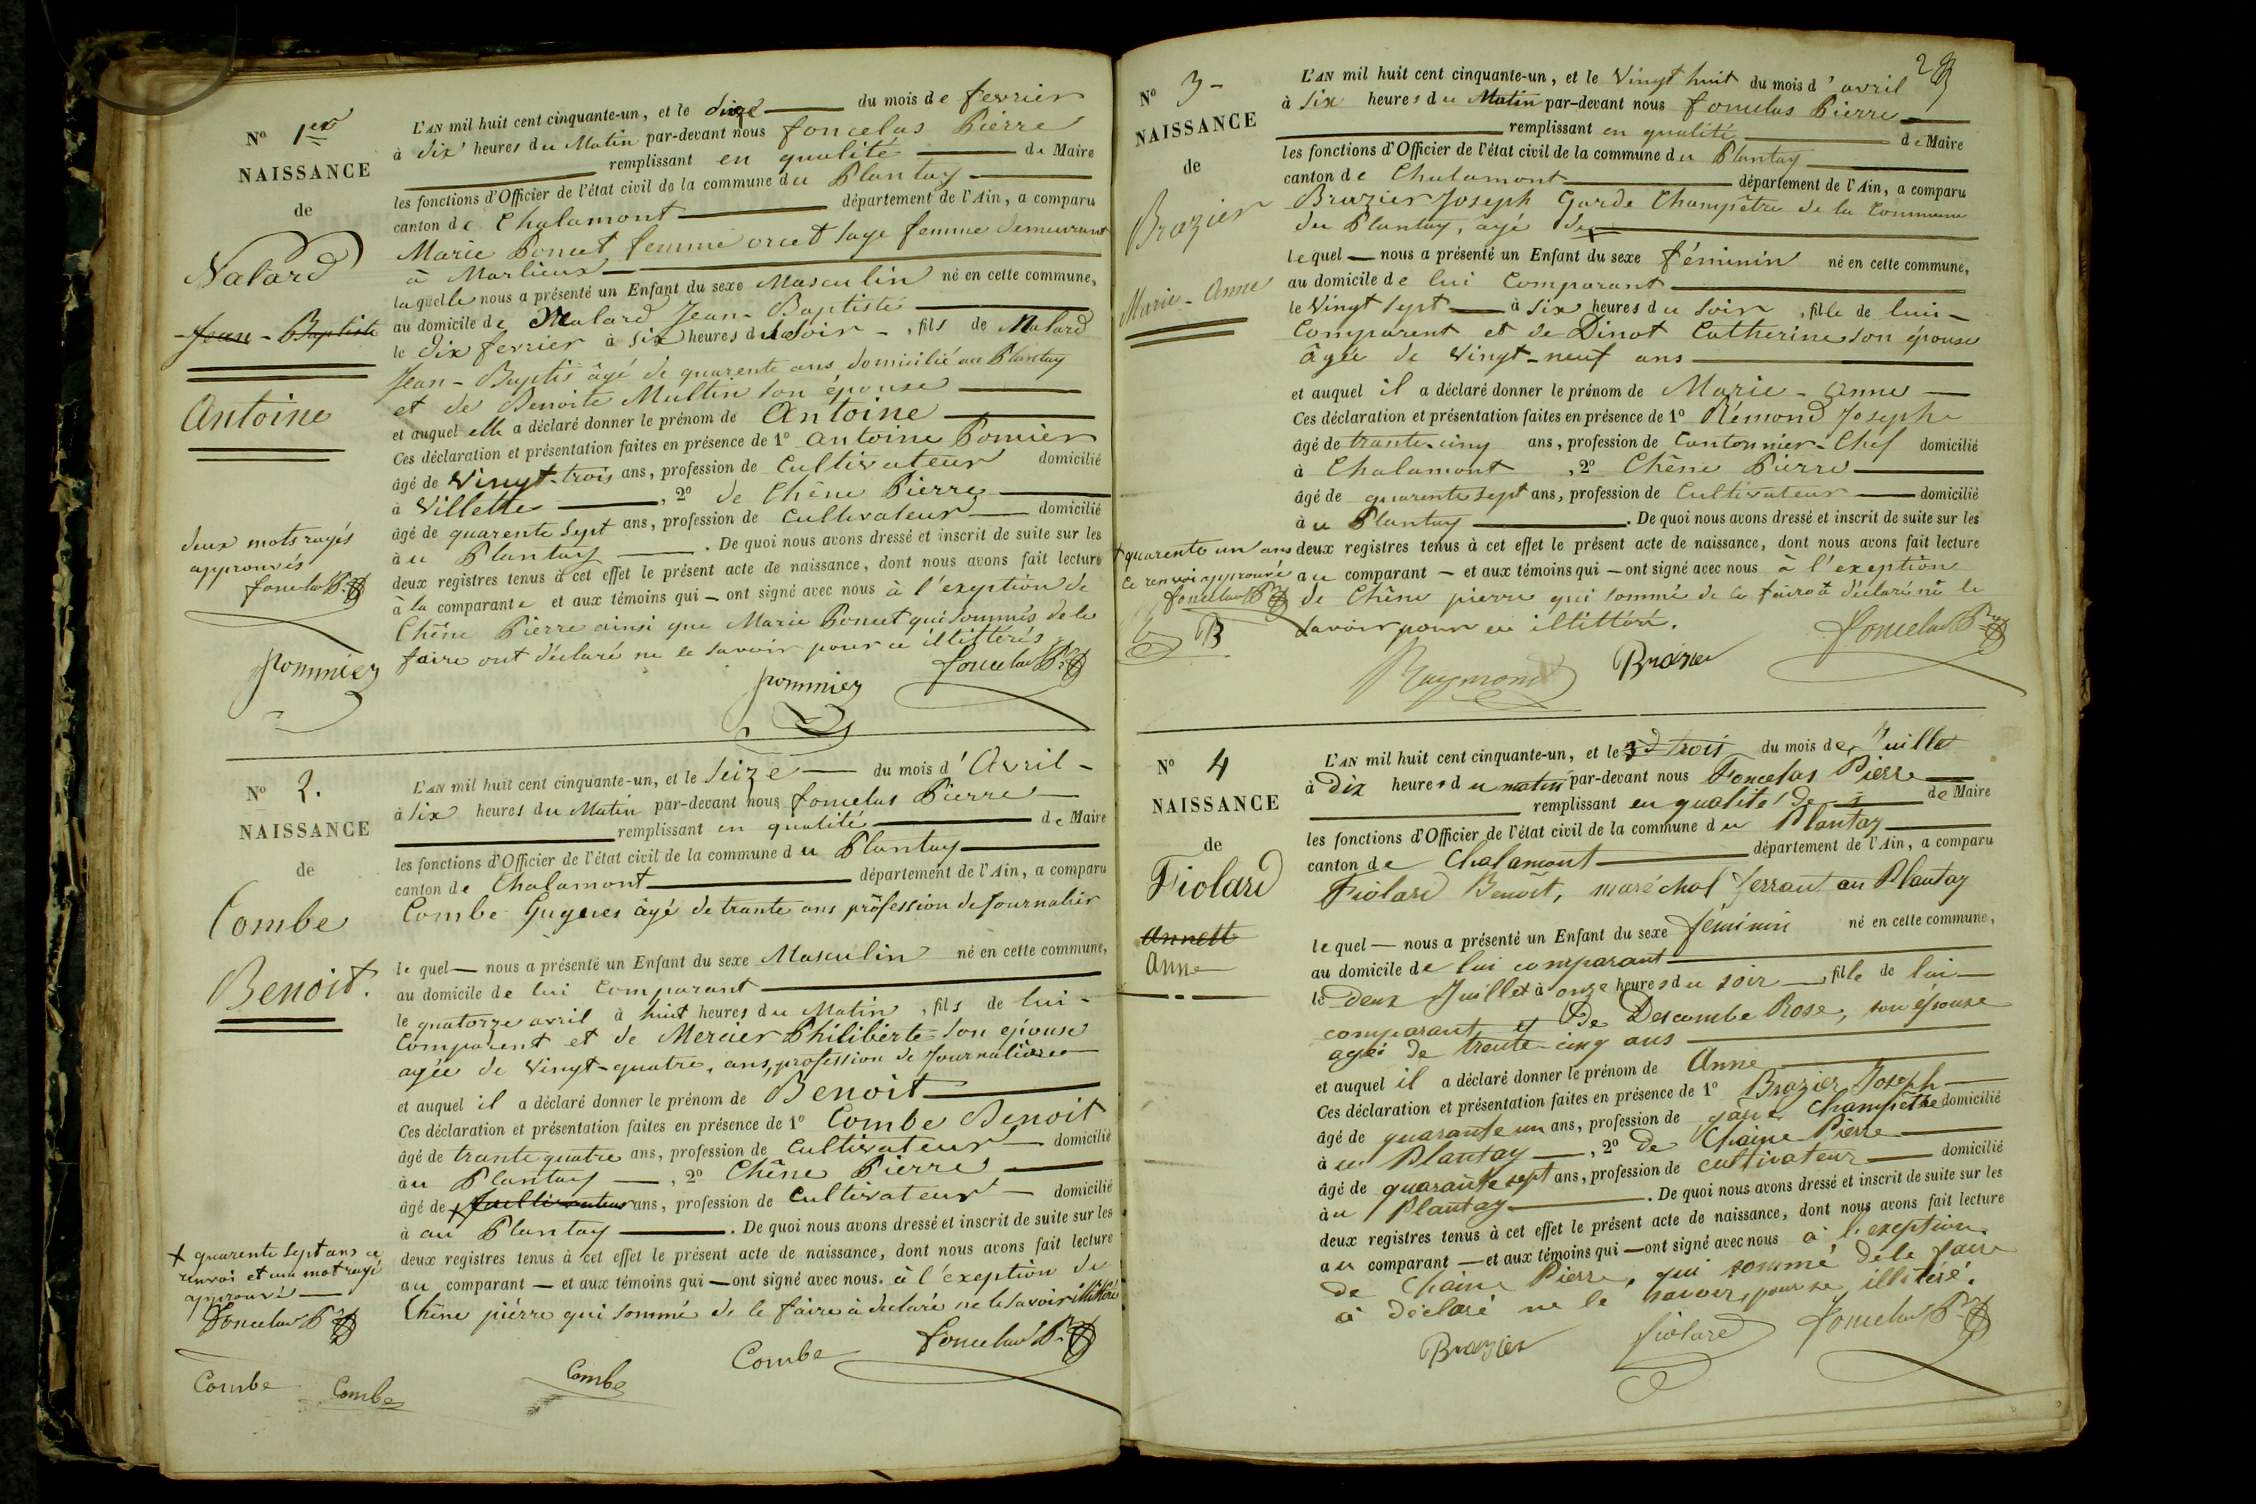 Nº 1er
NAISSANCE
de
Nalard
Jean - Baptiste
Antoine
deux mots rayés
approuvés
L'AN mil huit cent cinquante-un, et le du mois de fevrier
à dix heures du Matin par-devant nous foncelas Pierre
remplissant en qualité de Maire
les fonctions d'Officier de l'état civil de la commune du Plantay
canton de Chalamont département de l'Ain, a comparu
Marie Poncet femme orcet sage femme demeurant
à Marlieux
laquelle nous a présenté un Enfant du sexe Masculin né en cette commune,
au domicile de Malard Jean-Baptiste
le dix fevrier à six heures du soir, fils de Malard
Jean-Baptis âgé de quarente ans domicilié au Plantay
et de Benoite Multin son épouse
et auquel elle a déclaré donner le prénom de Antoine
Ces déclaration et présentation faites en présence de 1º antoine Pomier
âgé de Vingt-trois ans, profession de Cultivateur domicilié
à Villette, 2º de Chêne Pierre
âgé de quarente sept ans, profession de Cultivateur domicilié
àu Plantay. De quoi nous avons dressé et inscrit de suite sur les
deux registres tenus à cet effet le présent acte de naissance, dont nous avons fait lecture
à la comparante et aux témoins qui - ont signé avec nous à l'exeption de
Chêne Pierre ainsi que Marie Poncet qui sommés de le
faire ont déclaré ne le savoir pour ce illittérés
pommier
pommier
foncelas Pre
Nº 2.
NAISSANCE
de
Combe
Benoit.
+ quarente sept ans ce
renvoi et un mot rayé
approuvé
foncelas Pre
L'AN mil huit cent cinquante-un, et le Seize du mois d'Avril -
à six heures du Matin par-devant nous foncelas Pierre
remplissant en qualité de Maire
les fonctions d'Officier de l'état civil de la commune du Plantay
canton de Chalamont département de l'Ain, a comparu
Combe âgé de trante ans profession de Journalier
le quel — nous a présenté un Enfant du sexe Masculin né en cette commune,
au domicile de lui Comparant
le quatorze avril à huit heures du Matin, fils de lui -
Comparent et de Mercier Philiberte son épouse
agée de Vingt-quatre, ans, profession de Journalière
et auquel il a déclaré donner le prénom de Benoit
Ces déclaration et présentation faites en présence de 1º Combe Benoit
âgé de trante quatre ans, profession de Cultivateur domicilié
àu Plantay, 2º Chêne Pierre
âgé de + ans, profession de Cultivateur domicilié
à au Plantay. De quoi nous avons dressé et inscrit de suite sur les
deux registres tenus à cet effet le présent acte de naissance, dont nous avons fait lecture
au comparant — et aux témoins qui — ont signé avec nous. à l'exeption de
Chêne piérre qui sommé de le faire à declaré ne le savoir illittéré
Combe Combe Combe Combe foncelas Pre
Nº 3 -
NAISSANCE
de
Brazier
Marie - Anne
+ quarente un ans
Ce renvoi approuvé
foncelas Pre
B
L'AN mil huit cent cinquante-un, et le Vingt huit du mois d'avril
à six heures du Matin par-devant nous foncelas Pierre
remplissant en qualité de Maire
les fonctions d'Officier de l'état civil de la commune du Plantay
canton de Chalamont département de l'Ain, a comparu
Brazier Joseph Garde Champêtre de la Commune
du Plantay, âgé de +
le quel — nous a présenté un Enfant du sexe féminin né en cette commune,
au domicile de lui Comparant
le Vingt sept à six heures du soir, fille de lui -
Comparent et de Dinot Catherine son épouse
âgée de Vingt-neuf ans
et auquel il a déclaré donner le prénom de Marie - anne
Ces déclaration et présentation faites en présence de 1º Rémond Joseph
âgé de trante cinq ans, profession de Cantonnier-Chef domicilié
à Chalamont, 2º Chêne Pierre
âgé de quarente sept ans, profession de Cultivateur domicilié
àu Plantay. De quoi nous avons dressé et inscrit de suite sur les
deux registres tenus à cet effet le présent acte de naissance, dont nous avons fait lecture
au comparant — et aux témoins qui — ont signé avec nous à l'exeption
de Chêne pierre qui sommé de le faire à déclaré ne le
Savoir pour ce illittéré.
Raymond Brazier foncelas Pre
Nº 4
NAISSANCE
de
Fiolard
Annett
Anne
L'AN mil huit cent cinquante-un, et le trois du mois de Juillet
à dix heures du matin par-devant nous Foncelas Pierre
remplissant en qualité de de Maire
les fonctions d'Officier de l'état civil de la commune du Plantay
canton de Chalamont département de l'Ain, a comparu
Fiolard Benoît, maréchal ferrant au Plantay
le quel — nous a présenté un Enfant du sexe féminin né en cette commune,
au domicile de lui comparant
le deux Juillet à onze heures du soir, fille de lui
comparant et De Descombe Rose, son épouse
agée de trente-cinq ans
et auquel il a déclaré donner le prénom de Anne
Ces déclaration et présentation faites en présence de 1º Brazier Joseph
âgé de quarante un ans, profession de garde Champêtre domicilié
à u Plantay, 2º de Chaine Pierre
âgé de quarante sept ans, profession de cultivateur domicilié
àu Plantay. De quoi nous avons dressé et inscrit de suite sur les
deux registres tenus à cet effet le présent acte de naissance, dont nous avons fait lecture
au comparant — et aux témoins qui — ont signé avec nous à l'exeption
de Chaine Pierre, qui sommé de le faire
à déclaré ne le savoir, pour se illitéré.
Brazier fiolard foncelas Pre